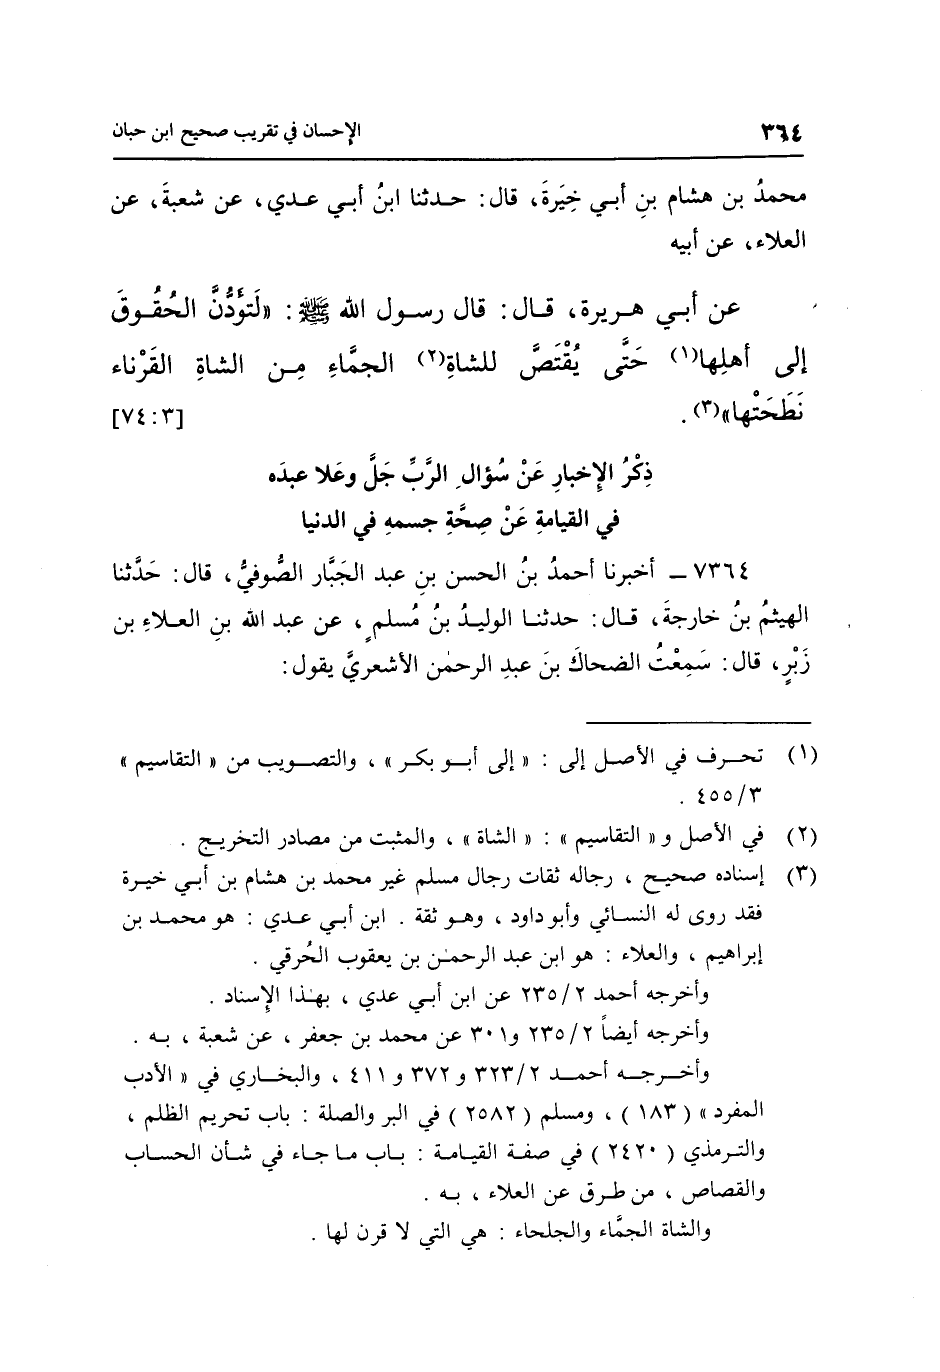 ٣٦٤ الإحسان في تقريب صحيح ابن حبان
محمدُ بن هشام بنِ أبـي خِيَرةَ، قال: حـدثنا ابنُ أبي عـدي، عن شعبةَ، عن
العلاء، عن أبيه
عن أبـي هـريرة، قـال: قال رسـول الله ﷺ: «لَتؤَدُّنَّ الحُقُـوقَ
إلى أهلِها(١) حَتَّى يُقْتَصَّ للشاةِ(٢) الجمَّاءِ مِـن الشاةِ القَرْناء
نَطَحَتْها»(٣). [٧٤:٣]
ذِكْرُ الإخبارِ عَنْ سُؤالِ الرَّبِّ جَلَّ وعَلا عبدَه
في القيامةِ عَنْ صِحَّةِ جسمهِ في الدنيا
٧٣٦٤ ـ أخبرنا أحمدُ بنُ الحسن بنِ عبد الجَبَّار الصُّوفيُّ، قال: حَدَّثنا
الهيثمُ بنُ خارجةَ، قـال: حدثنـا الوليـدُ بنُ مُسلمٍ، عن عبد الله بنِ العـلاءِ بن
زَبْرٍ، قال: سَمِعْتُ الضحاكَ بنَ عبدِ الرحمٰن الأشعريَّ يقول:
(١) تحـرف في الأصـل إلى : « إلى أبـو بكـر » ، والتصـويب من « التقاسيم »
٤٥٥/٣ .
(٢) في الأصل و « التقاسيم » : « الشاة » ، والمثبت من مصادر التخريـج .
(٣) إسناده صحيح ، رجاله ثقات رجال مسلم غير محمد بن هشام بن أبـي خيرة
فقد روى له النسائي وأبو داود ، وهـو ثقة . ابن أبـي عـدي : هو محمـد بن
إبراهيم ، والعلاء : هو ابن عبد الرحمٰـن بن يعقوب الحُرقي .
وأخرجه أحمد ٢٣٥/٢ عن ابن أبـي عدي ، بهٰذا الإسناد .
وأخرجه أيضاً ٢٣٥/٢ و٣٠١ عن محمد بن جعفر ، عن شعبة ، بـه .
وأخـرجـه أحمـد ٣٢٣/٢ و ٣٧٢ و ٤١١ ، والبخـاري في « الأدب
المفرد » ( ١٨٣ ) ، ومسلم ( ٢٥٨٢ ) في البر والصلة : باب تحريم الظلم ،
والتـرمذي ( ٢٤٢٠ ) في صفـة القيامـة : بـاب مـا جـاء في شـأن الحسـاب
والقصاص ، من طـرق عن العلاء ، بـه .
والشاة الجمَّاء والجلحاء : هي التي لا قرن لها .